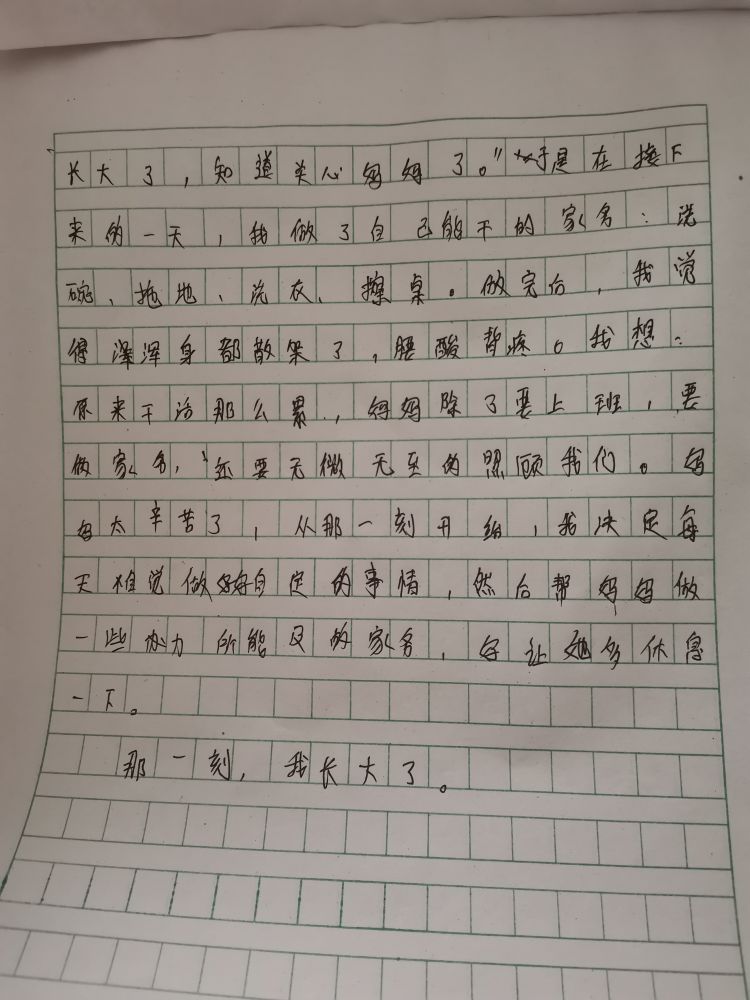 长大了，知道关心妈妈了。”于是在接下
来的一天，我做了自己能干的家务：洗
碗、拖地、洗衣、擦桌。做完后，我觉
得浑身都散架了，腰酸背疼。我想：
原来干活那么累，妈妈除了要上班，要
做家务，还要无微无至的照顾我们。妈
妈太辛苦了，从那一刻开始，我决定每
天自觉做好自定的事情，然后帮妈妈做
一些力所能及的家务，好让她多休息
一下。
那一刻，我长大了。